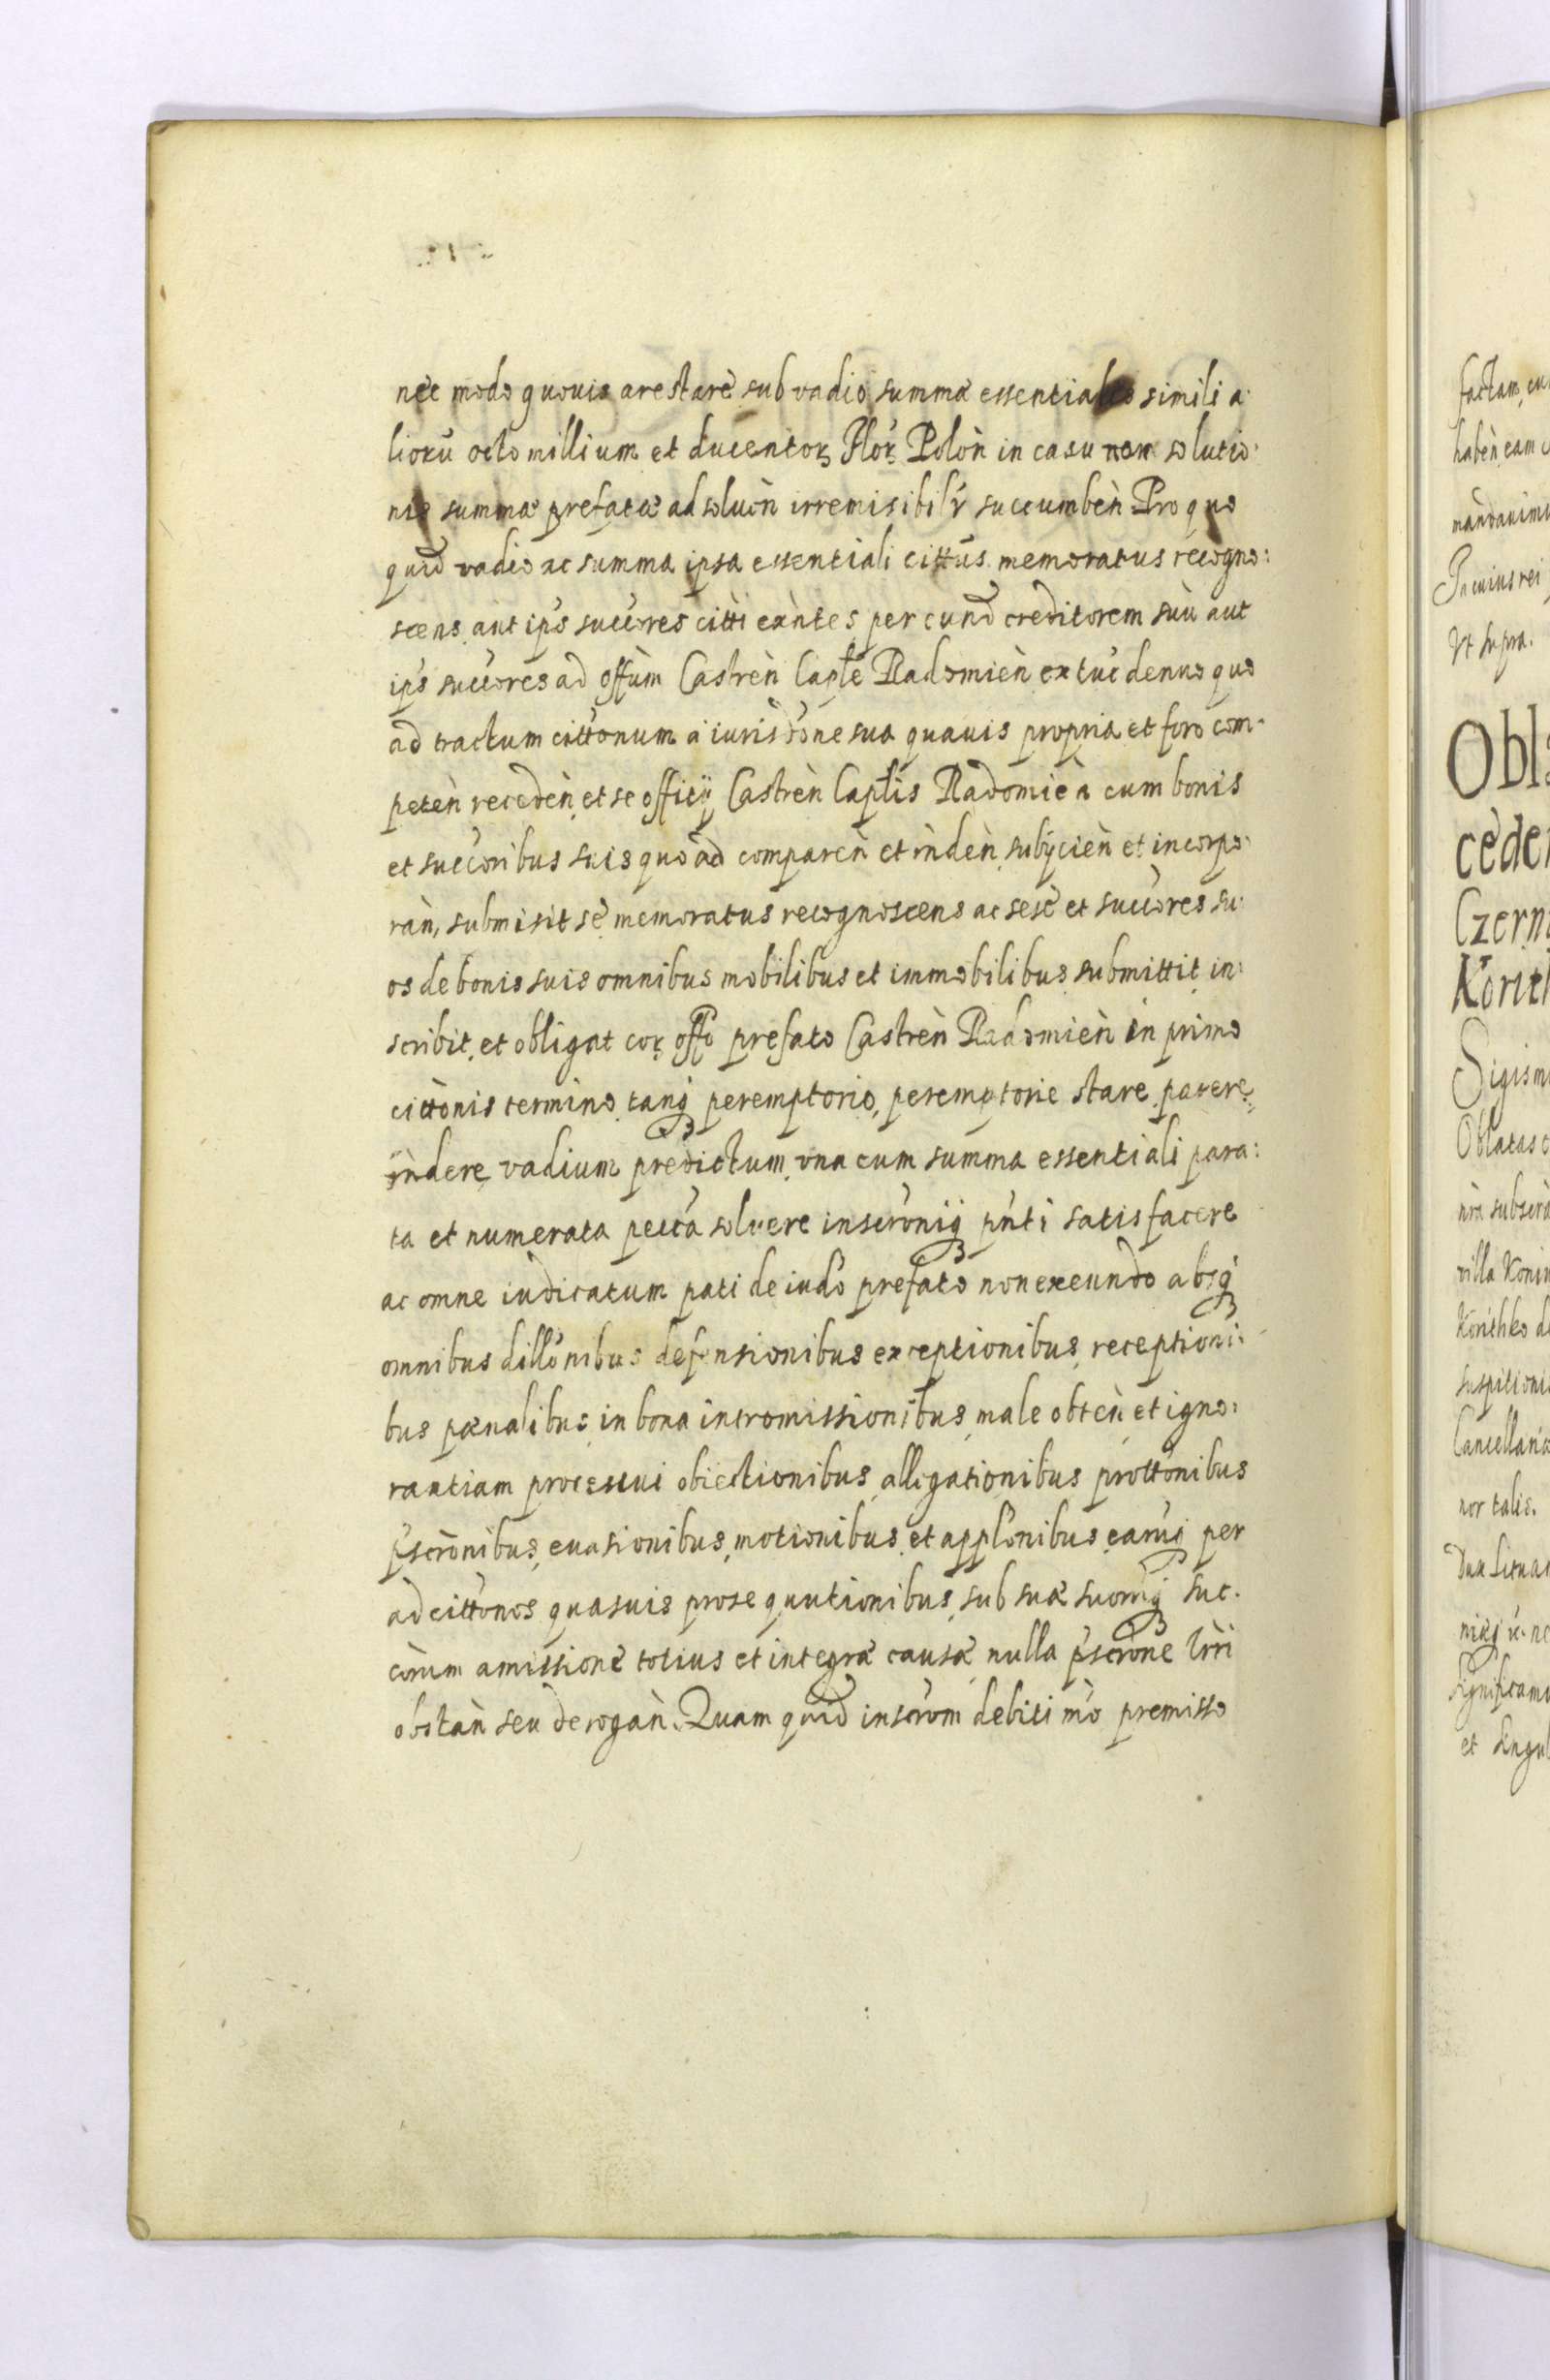 nec modo quovis arestare sub vadio summæ essentiales simili a
liorũ octo millium et ducentoꝝ Flor̃ Polon̄ in casu non solutio:
nis summæ prefatæ ad soluen̄ irremisibilr̃ succumben̄ Pro quo
quid̃ vadio ac summa ipsa essentiali cittũs memoratus recogno:
scens aut ip̃s succ̃ores citti exñtes per eund̃ creditorem suũ aut
ip̃s succ̃ores ad off̃um Castren̄ Capl̃e Radomien̄ ex tuc̃ denuo quo
ad tractum citt̃onum a iurisd̃one sua quauis propria et foro com-
peten̄ receden̄, et se officij Castren̄ Capl̃is Radomien cum bonis
et succ̃oribus suis quo ad comparen̄ et r̃nden̄ subijcien̄ et incorpo:
ran̄, submisit se memoratus recognoscens ac sese et succ̃ores su:
os de bonis suis omnibus mobilibus et immobilibus submittit in:
scribit, et obligat coꝝ off̃o prefato Castren̄ Radomien̄ in primo
citt̃onis termino tanq̃ peremptorio, peremptorie stare parere,
r̃ndere vadium predictum, vna cum summa essentiali para:
ta et numerata pecc̃a soluere inscr̃oniq̃ pñti satisfacere
ac omne iudicatum pati de iud̃o prefato non exeundo absq̃
omnibus dill̃onibus defensionibus exceptionibus, receptioni:
bus pœnalibus, in bona intromissionibus, male obten̄, et igno:
rantiam processui obiectionibus, allegationibus prott̃onibus
p̃scr̃onibus, euasionibus, motionibus, et appl̃onibus, earuq̃ per
ad citt̃onos quasuis prosequutionibus, sub suæ suorũq̃ suc:
c̃orum amissione totius et integræ causæ, nulla p̃scr̃one lr̃ri
obstan̄ seu derogan̄. Quam quid̃ inscr̃om debiti mõ premisso
factam,
haben̄ eam
mandauimu
In cuius rei
Vt supra.
Obl
ceden
Czern
Korit
Sigism
Oblatas
nr̃a subscr̃
villa Konin
Korithko d
suspitioni
Cancellariæ
nor talis.
Dux Lituan
et singul